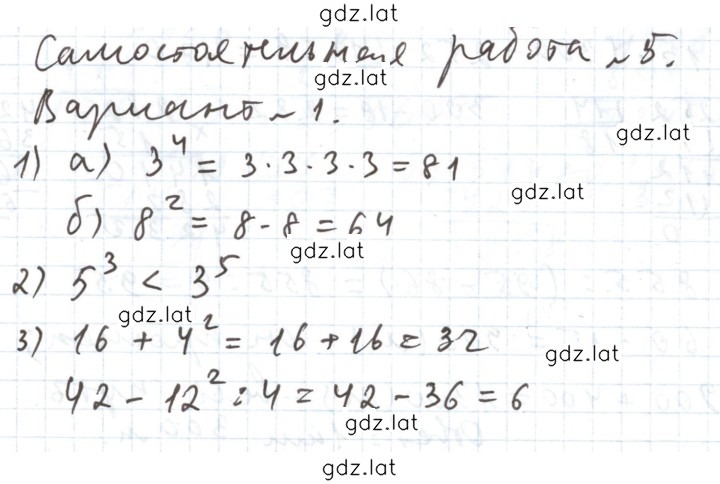 gdz.lat
Самостоятельная работа №5.
gdz.lat
Вариант №1.
gdz.lat
1) а) 3⁴ = 3·3·3·3 = 81
gdz.lat
б) 8² = 8-8 = 64
gdz.lat
2) 5³ < 3⁵
gdz.lat
3) 16 + 4² = 16 + 16 = 32
gdz.lat
42 - 12² : 4 = 42 - 36 = 6
gdz.lat
gdz.lat